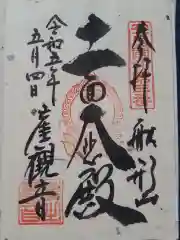 奉拝 船形山
十一面大悲殿
令和五年
五月四日 崖觀音